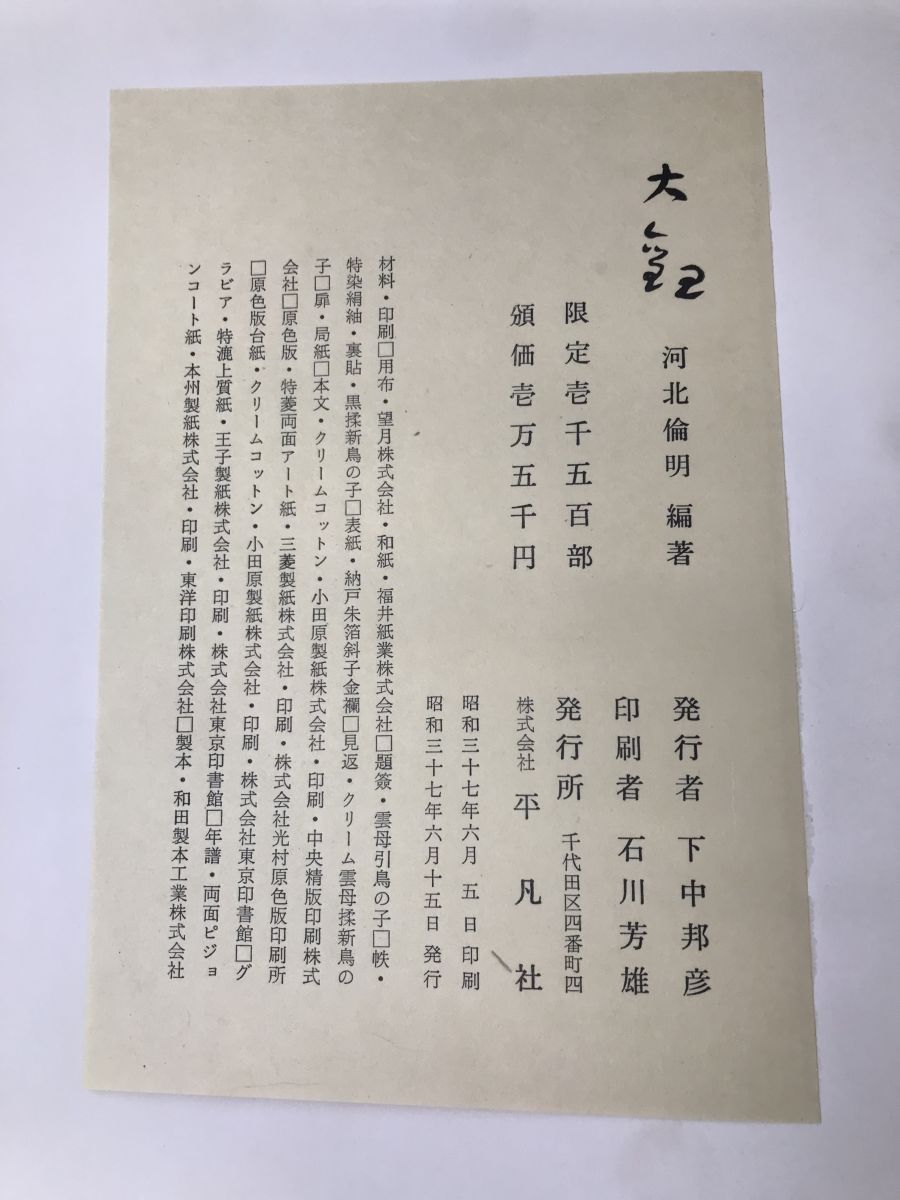 大観
河北倫明 編著
限定壱千五百部
頒価壱万五千円
発行者 下中邦彦
印刷者 石川芳雄
発行所 千代田区四番町四
株式会社 平凡社
昭和三十七年六月 五 日 印刷
昭和三十七年六月十五日 発行
材料・印刷□用布・望月株式会社・和紙・福井紙業株式会社□題簽・雲母引鳥の子□帙・
特染絹紬・裏貼・黒揉新鳥の子□表紙・納戸朱箔斜子金襴□見返・クリーム雲母揉新鳥の
子□扉・局紙□本文・クリームコットン・小田原製紙株式会社・印刷・中央精版印刷株式
会社□原色版・特菱両面アート紙・三菱製紙株式会社・印刷・株式会社光村原色版印刷所
□原色版台紙・クリームコットン・小田原製紙株式会社・印刷・株式会社東京印書館□グ
ラビア・特漉上質紙・王子製紙株式会社・印刷・株式会社東京印書館□年譜・両面ピジョ
ンコート紙・本州製紙株式会社・印刷・東洋印刷株式会社□製本・和田製本工業株式会社